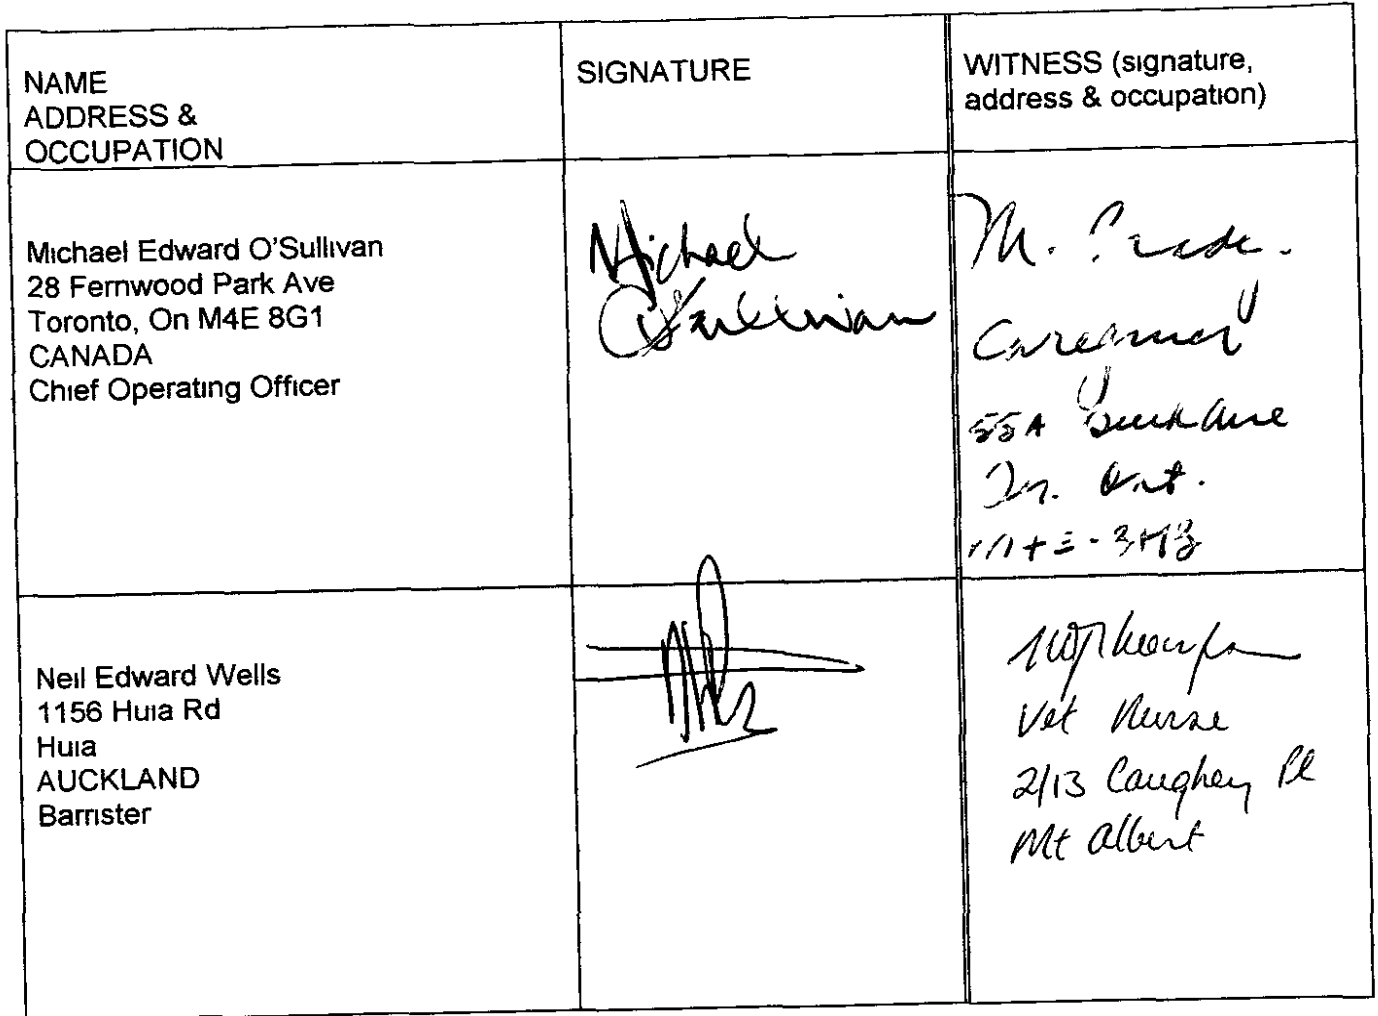 NAME
ADDRESS &
OCCUPATION
SIGNATURE
WITNESS (signature,
address & occupation)
Michael Edward O'Sullivan
28 Fernwood Park Ave
Toronto, On M4E 8G1
CANADA
Chief Operating Officer
Michael
O'Sullivan
M.
Caregiver
55A Ave
Ont.
Neil Edward Wells
1156 Huia Rd
Huia
AUCKLAND
Barrister
Vet Nurse
2/13 Caughey Pl
Mt Albert